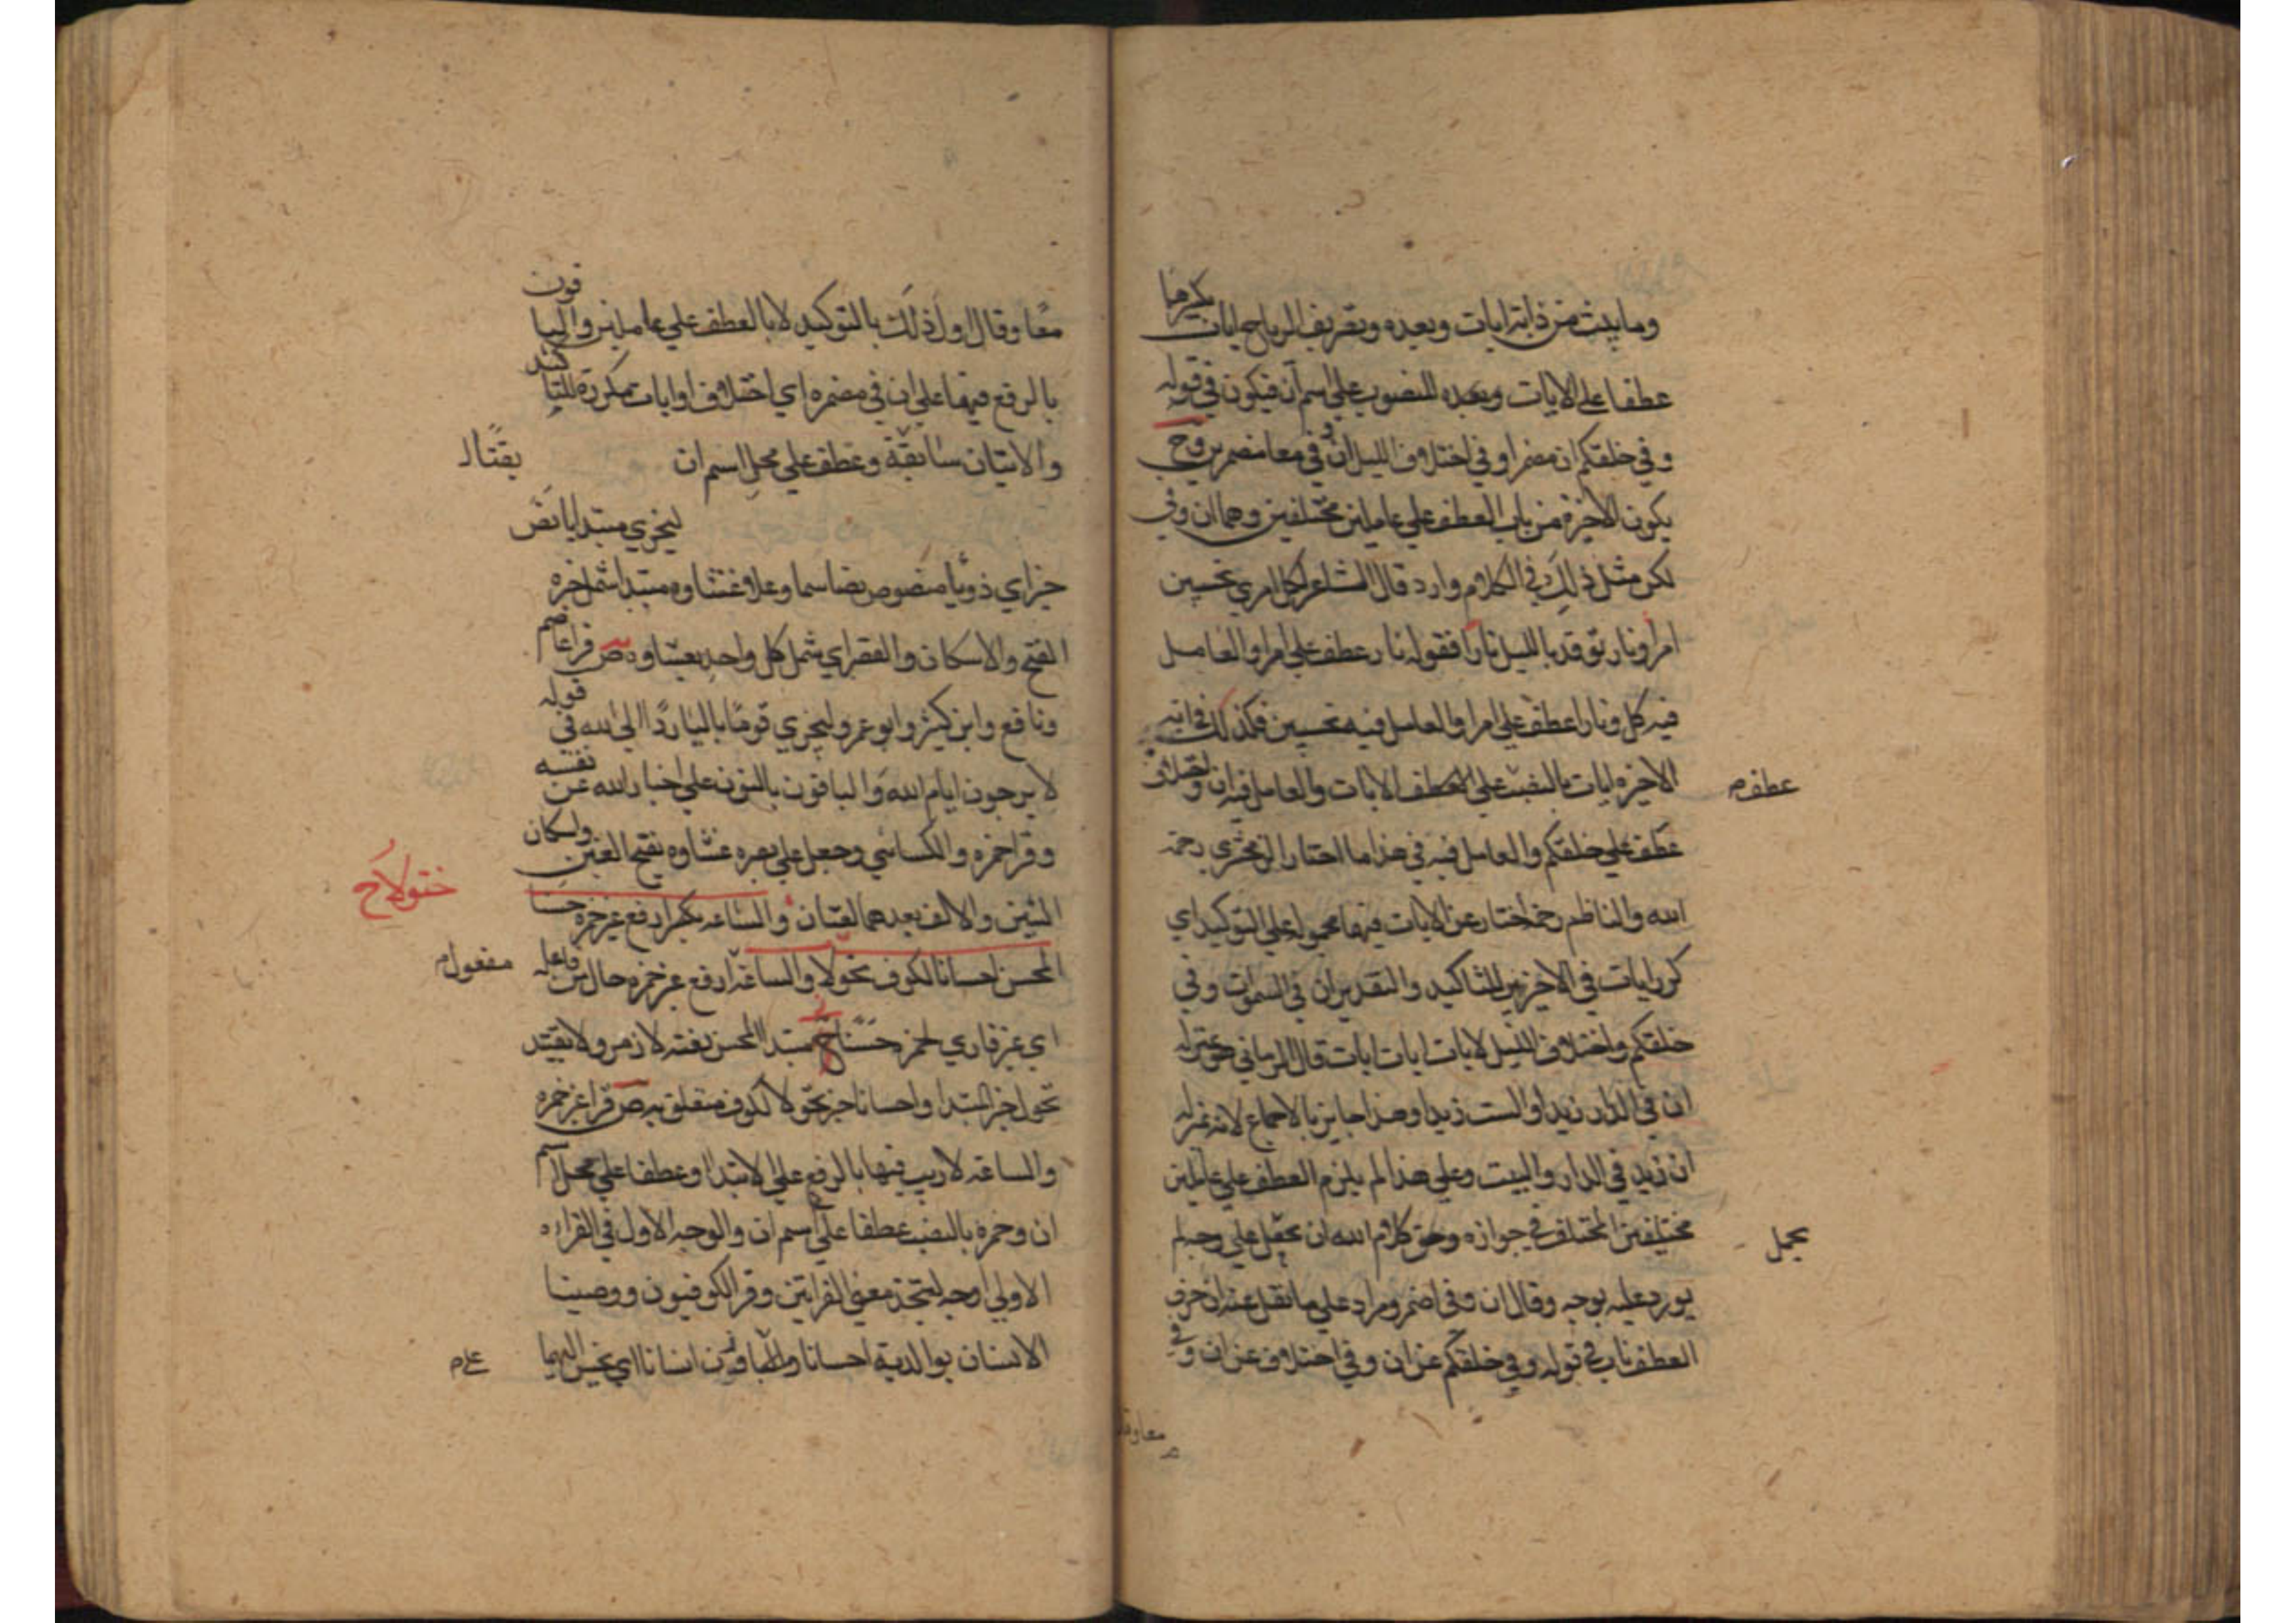 وما يبث من دابة ايات وبعده وتصريف الرياح ايات بكسرها
عطفا على الايات وبعده المنصوب علي اسم ان فيكون في قوله
وفي خلقكم ان مضمرا وفي اختلاف الليل ان وفي معا مضمرين وح
يكون الاخيرة من باب العطف علي عاملين مختلفين وهما ان وفي
لكن مثل ذلك في الكلام وارد قال الشاعر اكل امري تحسبين
امرا ونار توقد بالليل نارا فقوله نار عطف علي امرا والعامل
فيه كل ونارا عطف علي امرا والعامل فيه تحسبين فكذلك في اية
الاخيره ايات بالنصب علي العطف الايات والعامل فيه ان
عطف م
عطف علي خلقكم والعامل فيه في هذا ما اختار الزمخشري رحمة
الله والناظم رحمه اختار عن الايات فيها محمولة علي التوكيد اي
كرر ايات في الاخرين للتاكيد والتقدير ان في السموات وفي
خلقكم واختلاف الليل لايات ايات ايات قال الرماني هو بمنزله
ان في الدار زيدا والبيت زيدا وهذا جايز بالاجماع لانه بمنزله
ان زيد في الدار والبيت وعلي هذا لم يلزم العطف علي عاملين
مختلفين المختلف في جوازه وحق كلام الله ان يحمل علي وجه لم
يحمل
يورد عليه بوجه وقال ان وفي اضمر ومراد علي ما نقل عنه ان حرف
العطف ناب في قوله وفي خلقكم عن ان وفي اختلاف عن ان وفي
معا وقال
معًا وقال اول ذلك بالتوكيد لا بالعطف علي عاملين والباقون
بالرفع فيها علي ان في مضمره اي اختلاف او ايات مكررة للتاكيد
والايتان سابقة وعطف علي محل اسم ان
يقال
ليجزي مبتدا يا نص
خبر اي ذو يا منصوص نصا سما وعلا وغشاوه مبتدا شمل خبره
الفتح والاسكان والقصر اي شمل كل واحد بغشاوه ص قرا عاصم
ونافع وابن كثير وابو عمرو ليجزي قوما باليا ردا الي الله في قوله
لا يرجون ايام الله والباقون بالنون علي اخبار الله عن نفسه
وقرا حمزه والكسائي وجعل علي بصره غشاوه بفتح الغين واسكان
الشين والالف بعدهما لغتان والساعه بكر ارفع غير حمزه حسنا
المحسن احسانا لكوف تحولا والساعة ارفع غير حمزه حال من فاعله
مفعول م
اي غير قاري لحمزه حسنا ح مبتدا المحسن نعته لازم ولا بقيد
تحول خبر المبتدا واحسانا خبر تحولا لكوف متعلق به ص قرا غير حمزه
والساعة لا ريب فيها بالرفع علي الابتدا وعطفا علي محل اسم
ان وحمزه بالنصب عطفا علي اسم ان والوجه الاول في القراه
الاولي اوجه ليتخذ معني القراتين وقرا الكوفيون ووصينا
الانسان بوالديه احسانا والباقون انسانا اي يحسن اليهما